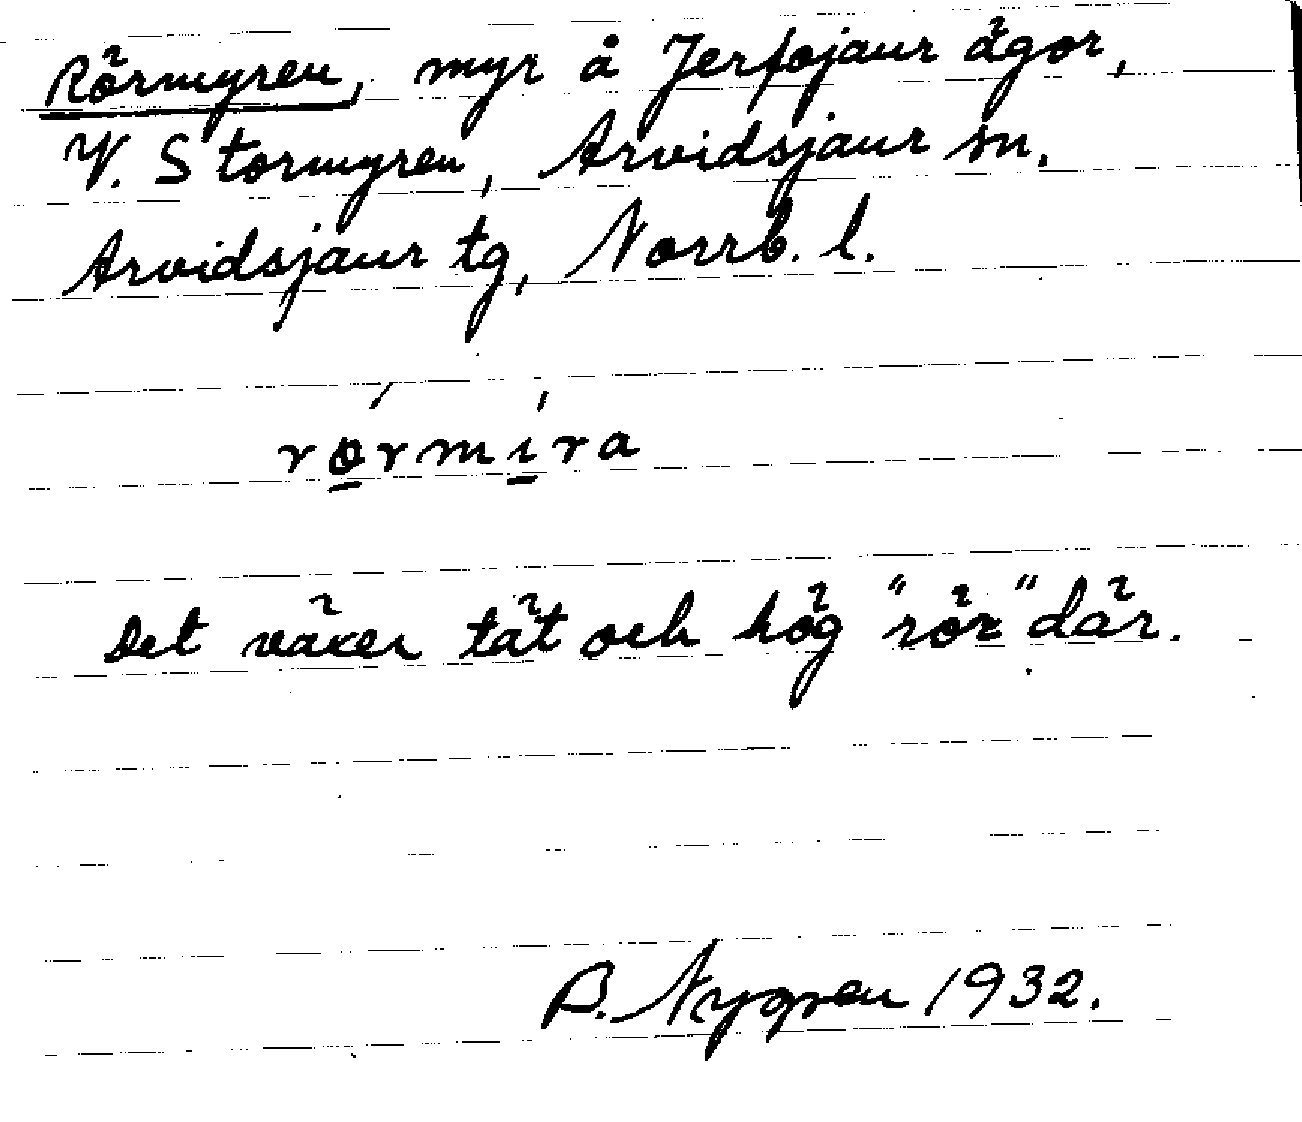 Rörmyren, myr å Jerfojaur ägor,
V. Stormyren, Arvidsjaur sn.
Arvidsjaur tg, Norrb. l.
rǿ̱rmí̱ra
Det växer tät och hög "rör" där.
B. Nygren 1932.